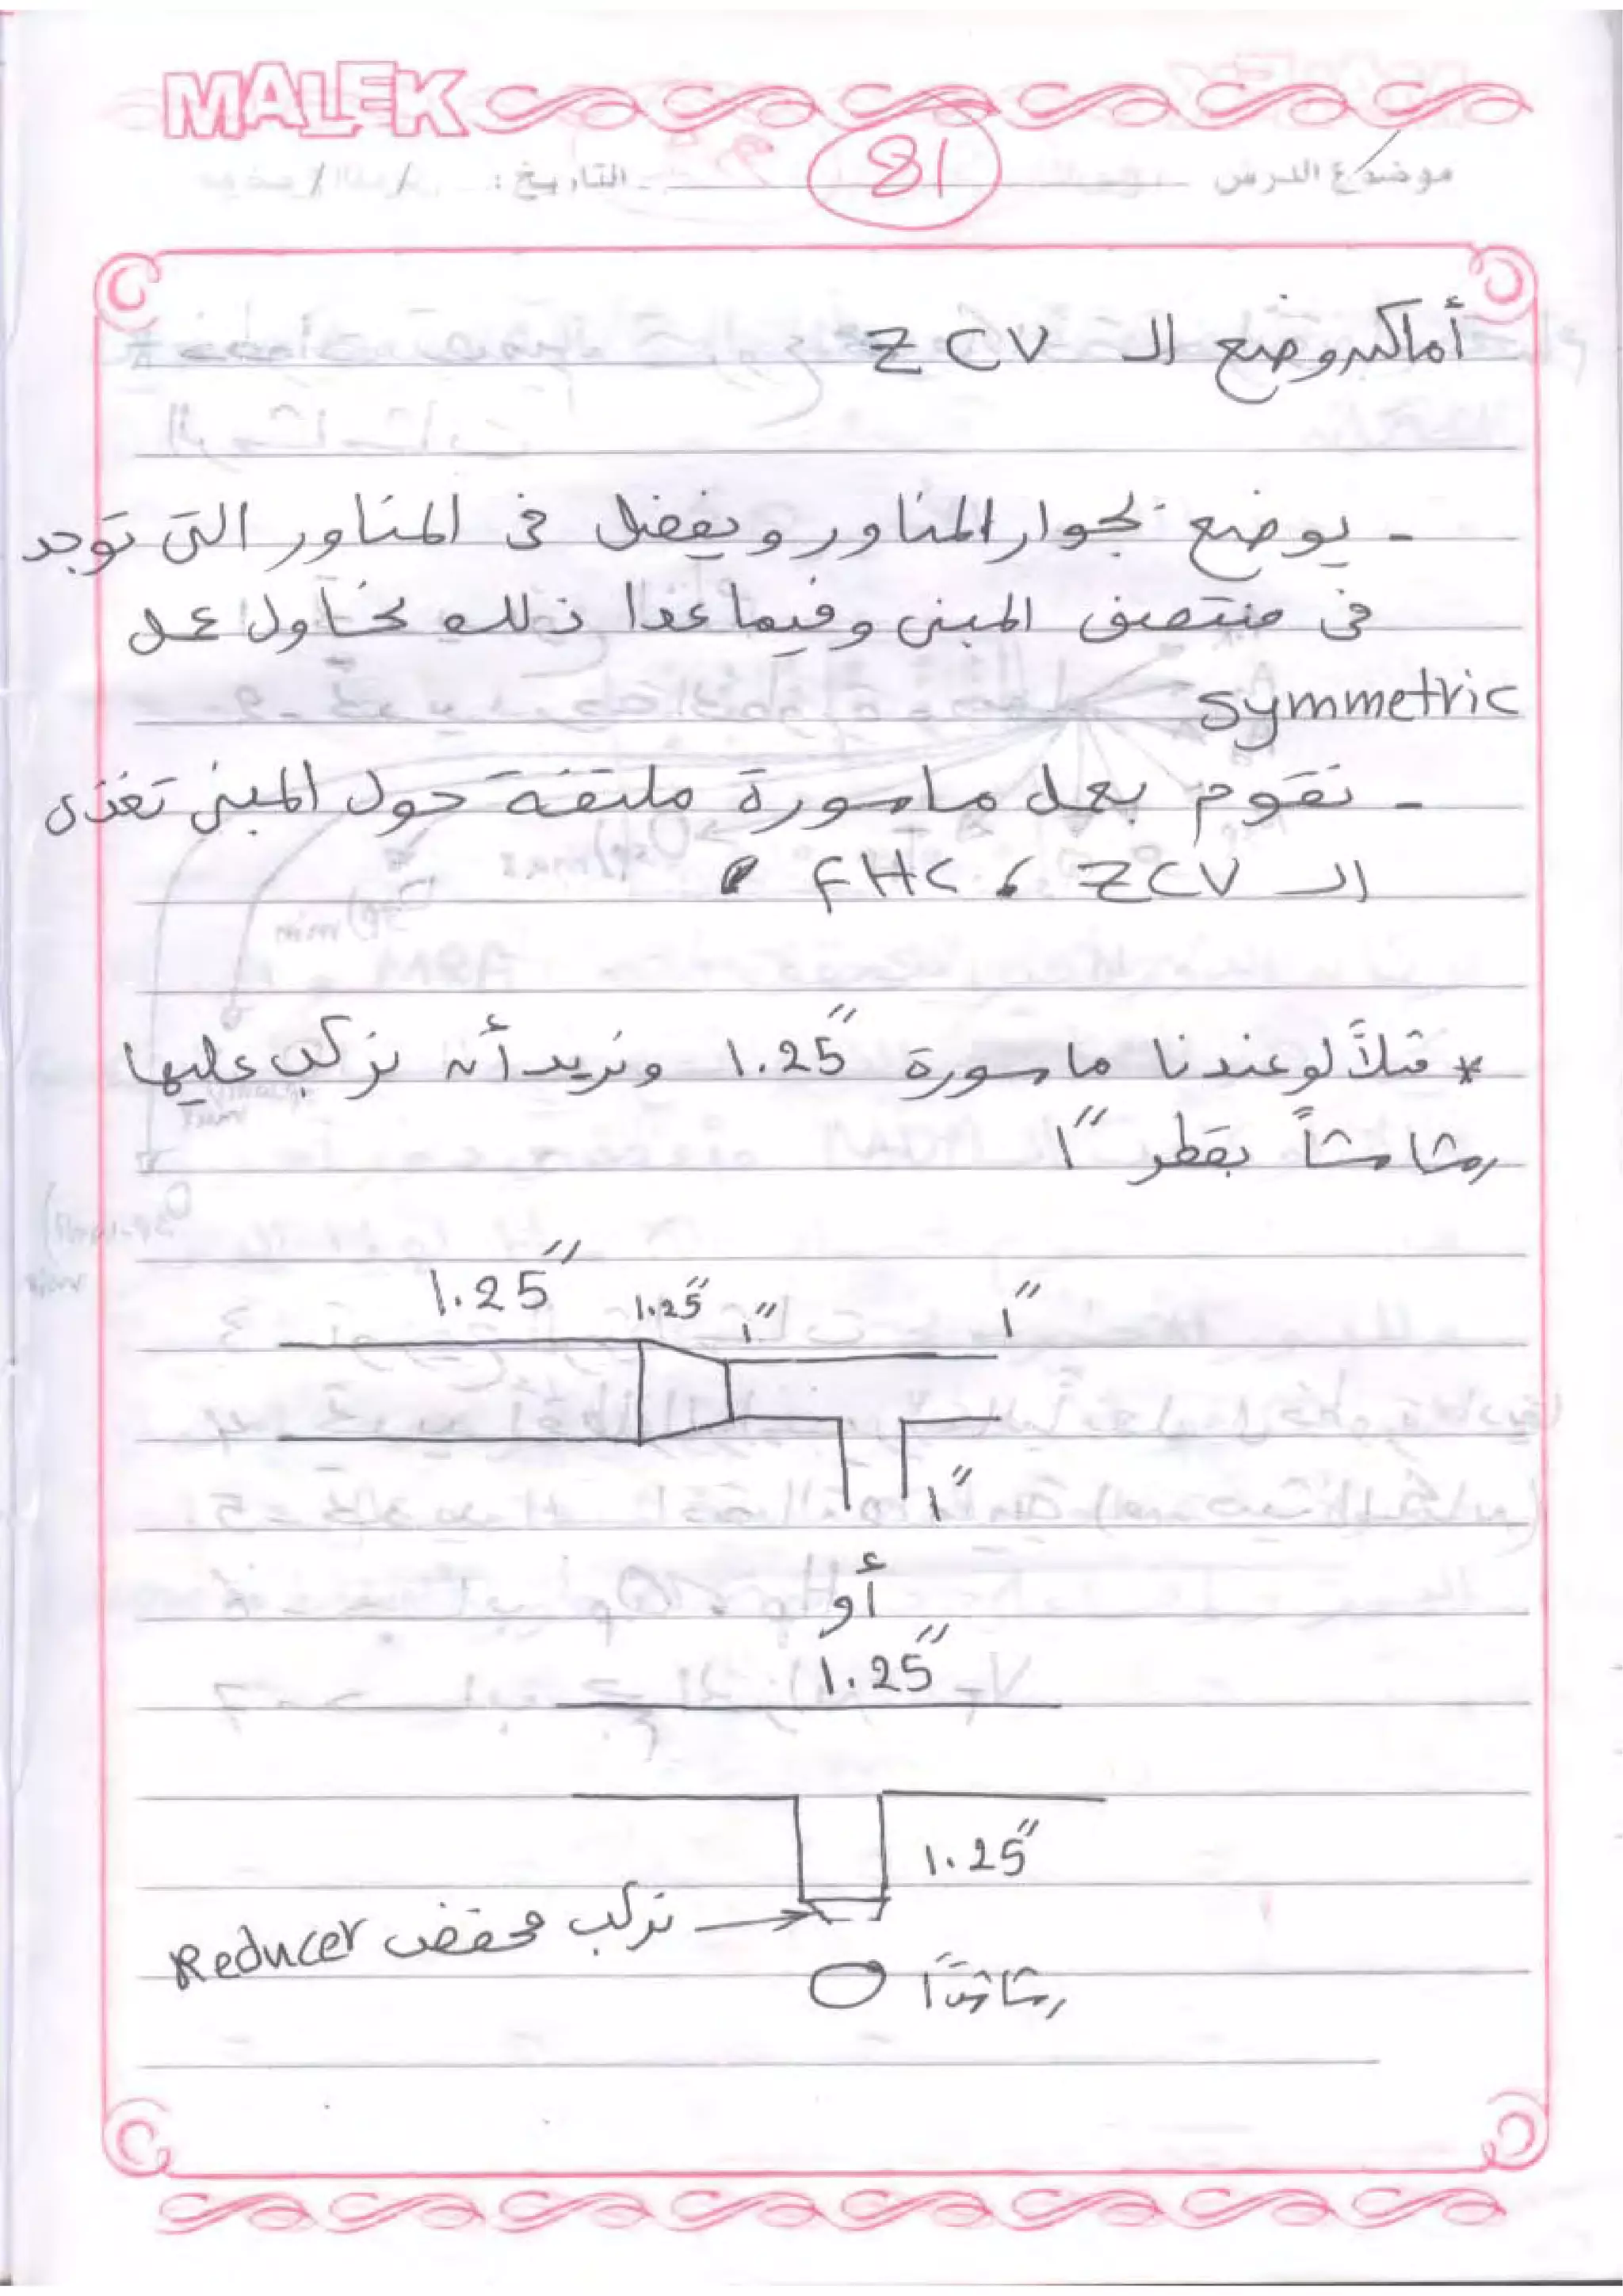 MALEK
موضوع الدرس
81
التاريخ : / /
أماكن وضع الـ ZCV
- يوضع بجوار المناور ويفضل فى المناور التى توجد
فى منتصف المبنى وفيما عدا ذلك نحاول عمل
symmetric
- نقوم بعمل ماسورة ملتفة حول المبنى تغذى
الـ ZCV ، FHC .
* مثلاً لو عندنا ماسورة 1.25" ونريد أن نركب عليها
رشاشاً بقطر 1"
1.25" 1.25" 1" 1"
1"
أو
1.25"
1.25"
نركب مخفض Reducer
رشاشاً